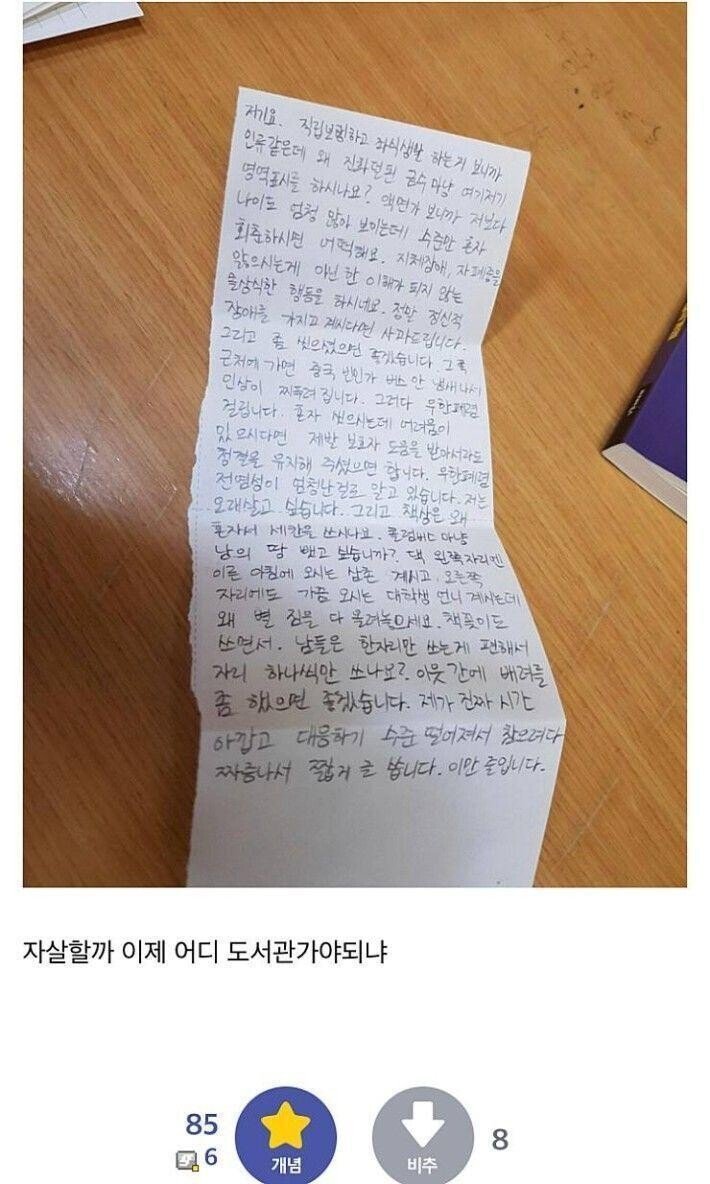 저기요. 직립보행하고 좌식생활 하는거 보니까
인류같은데 왜 진화덜된 금수마냥 여기저기
영역표시를 하시나요? 액면가 보니까 저보다
나이도 엄청 많아 보이는데 수준만 혼자
회춘하시면 어떡해요. 지체장애, 자폐증을
앓으시는게 아닌 한 이해가 되지 않는
몰상식한 행동을 하시네요. 정말 정신적
장애를 가지고 계시다면 사과드립니다.
그리고 좀 씻으셨으면 좋겠습니다. 그쪽
근처에 가면 중국 빈민가 버스 안 냄새나서
인상이 찌푸려 집니다. 그러다 우한폐렴
걸립니다. 혼자 씻으시는데 어려움이
있으시다면 제발 보호자 도움을 받아서라도
청결을 유지해 주셨으면 합니다. 우한폐렴
전염성이 엄청난걸로 알고 있습니다. 저는
오래살고 싶습니다. 그리고 책상은 왜
혼자서 세칸을 쓰시나요. 콜럼버스마냥
남의 땅 뺏고 보십니까? 댁 왼쪽자리엔
이른 아침에 오시는 삼촌 계시고, 오른쪽
자리에도 가끔 오시는 대학생 언니 계시는데
왜 별 짐을 다 올려놓으세요. 책꽂이도
쓰면서. 남들은 한자리만 쓰는게 편해서
자리 하나씩만 쓰나요? 이웃간에 배려를
좀 했으면 좋겠습니다. 제가 진짜 시간
아깝고 대응하기 수준 떨어져서 참으려다
짜증나서 짧게 글 씁니다. 이만 줄입니다.
자살할까 이제 어디 도서관가야되냐
85
6
개념
비추
8